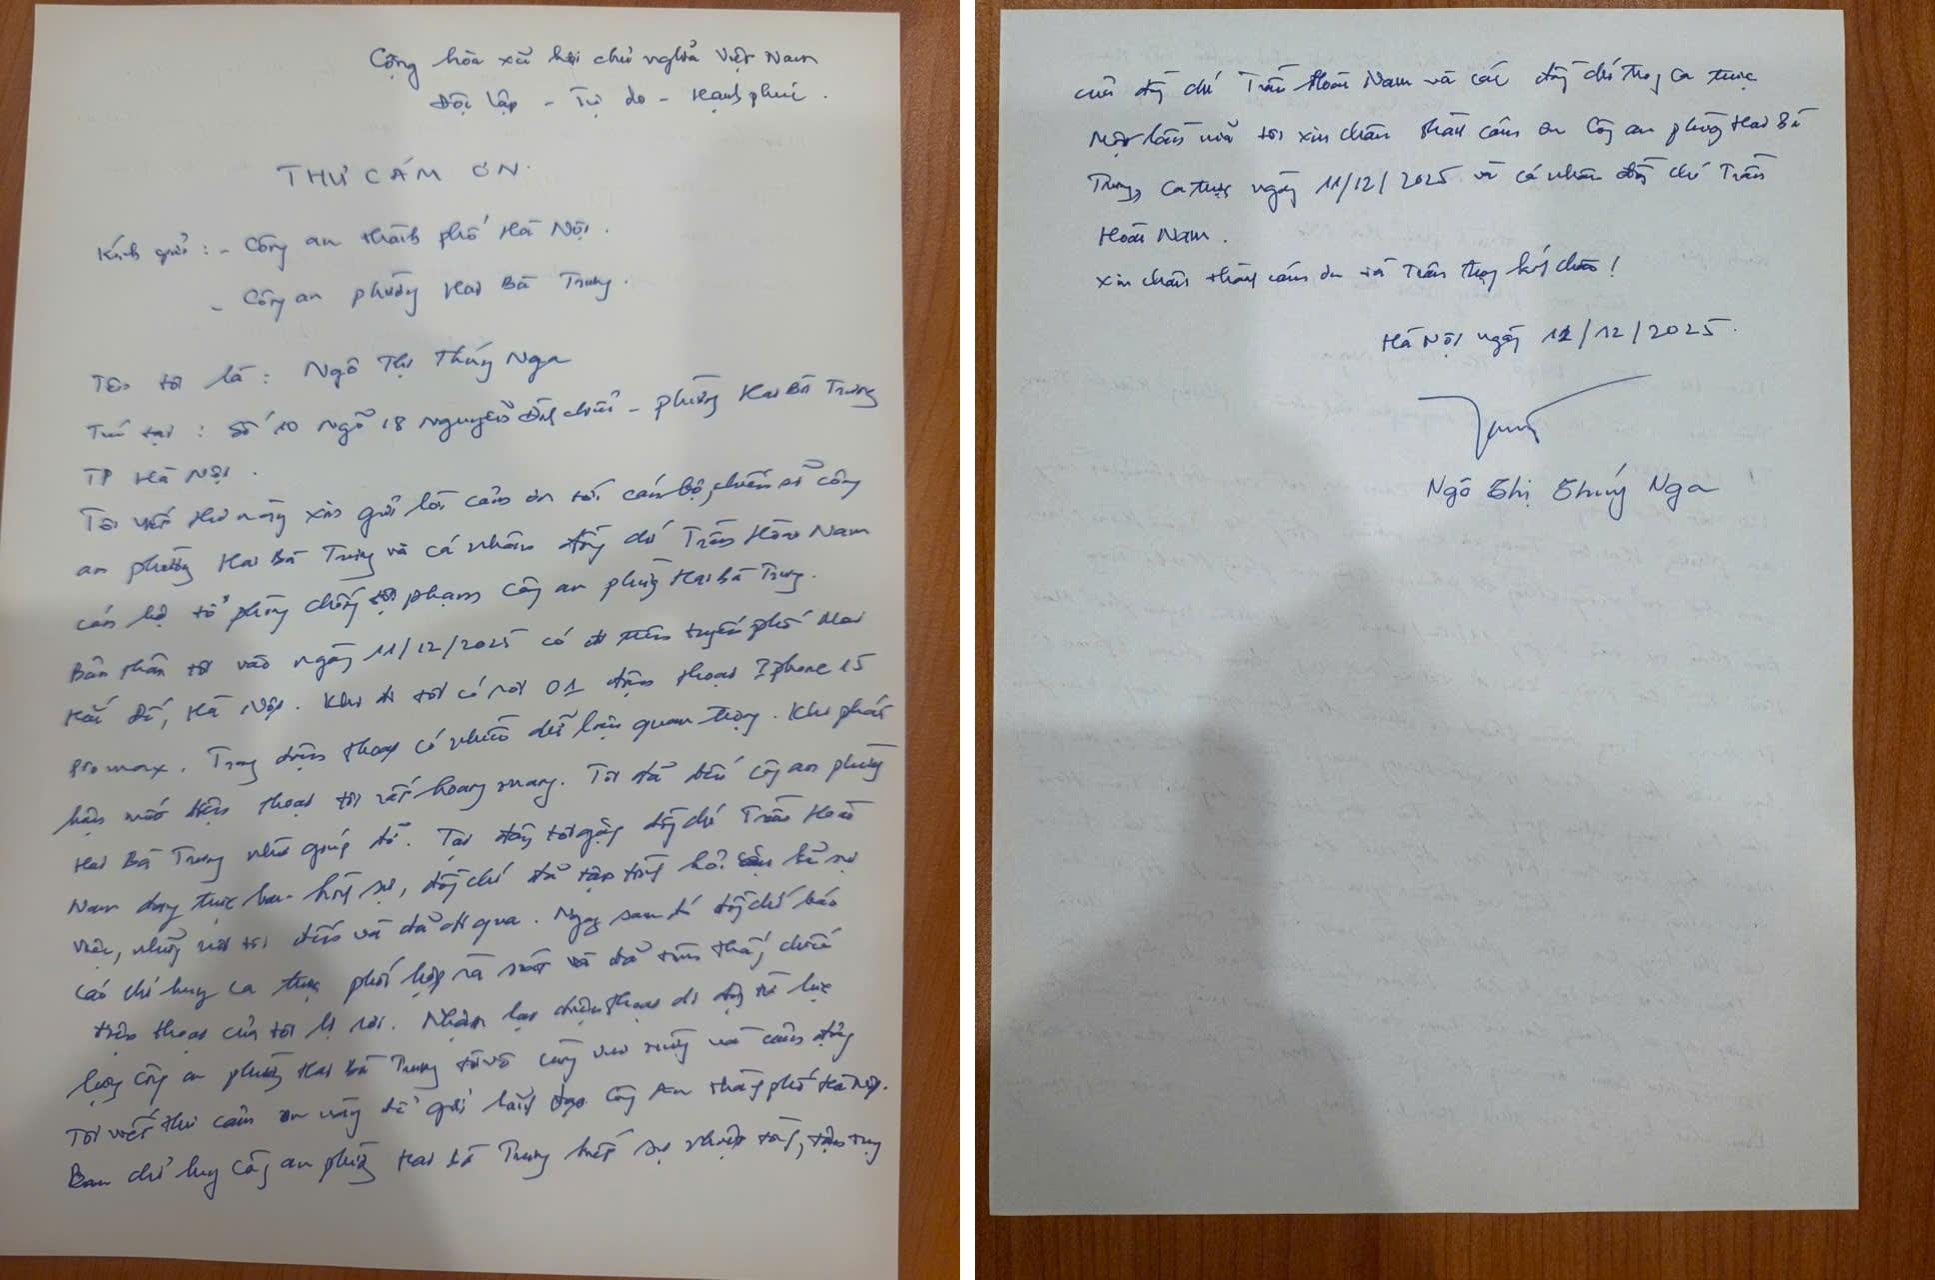 Cộng hòa xã hội chủ nghĩa Việt Nam
Độc lập - Tự do - Hạnh phúc.
THƯ CẢM ƠN.
Kính gửi: - Công an thành phố Hà Nội.
- Công an phường Hai Bà Trưng.
Tên tôi là: Ngô Thị Thúy Nga
Trú tại: Số 10 ngõ 18 Nguyễn Đình Chiểu - phường Hai Bà Trưng
TP Hà Nội.
Tôi viết thư này xin gửi lời cảm ơn tới cán bộ, chiến sĩ công
an phường Hai Bà Trưng và cá nhân đồng chí Trần Hoài Nam
cán bộ tổ phòng chống tội phạm Công an phường Hai Bà Trưng.
Bản thân tôi vào ngày 11/12/2025 có đi trên tuyến phố Mai
Hắc Đế, Hà Nội. Khi đi tôi có rơi 01 điện thoại Iphone 15
promax. Trong điện thoại có nhiều dữ liệu quan trọng. Khi phát
hiện mất điện thoại tôi rất hoang mang. Tôi đã đến Công an phường
Hai Bà Trưng nhờ giúp đỡ. Tại đây tôi gặp đồng chí Trần Hoài
Nam đang trực ban hình sự, đồng chí đã tận tình hỏi kể sự
việc, những nơi tôi đến và đã đi qua. Ngay sau đó đồng chí báo
cáo chỉ huy ca trực phối hợp rà soát và đã tìm thấy chiếc
điện thoại của tôi bị rơi. Nhận lại điện thoại di động từ lực
lượng công an phường Hai Bà Trưng tôi vô cùng vui mừng và cảm động
Tôi viết thư cảm ơn này để gửi lãnh đạo Công An thành phố Hà Nội.
Ban chỉ huy Công an phường Hai Bà Trưng biết sự nhiệt tình, tận tụy
của đồng chí Trần Hoài Nam và các đồng chí trong ca trực
Một lần nữa tôi xin chân thành cảm ơn Công an phường Hai Bà
Trưng, ca trực ngày 11/12/2025 và cá nhân đồng chí Trần
Hoài Nam.
Xin chân thành cảm ơn và trân trọng kính chào!
Hà Nội ngày 12/12/2025.
Ngô Thị Thúy Nga